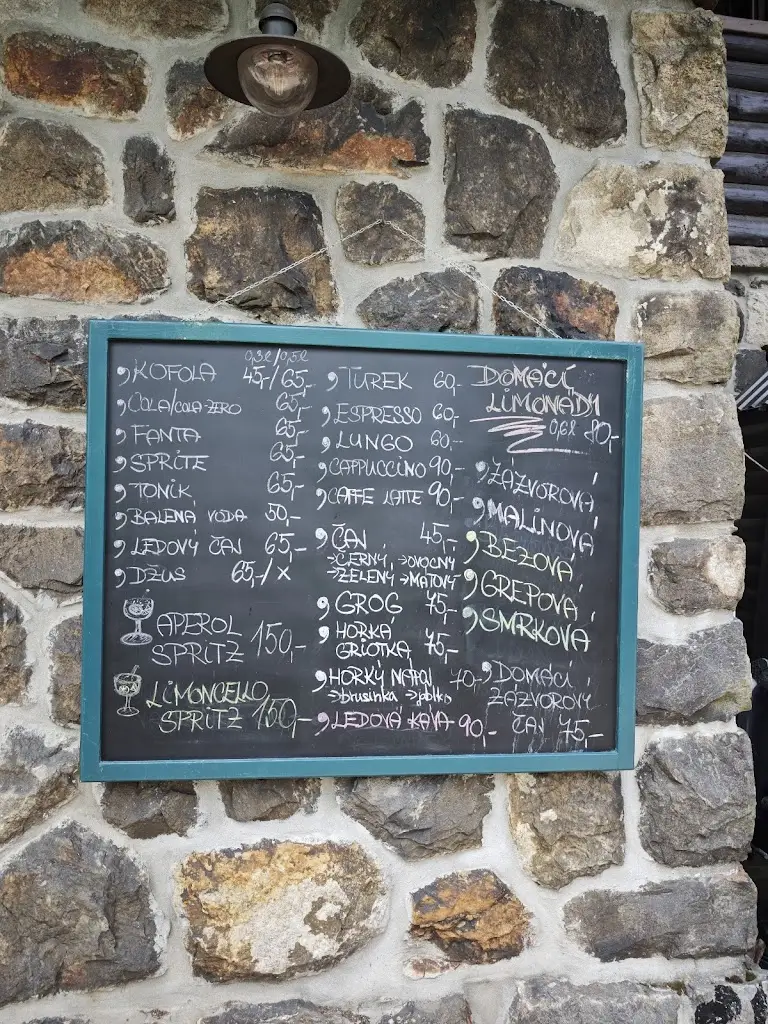 0,3l/0,5l
KOFOLA 45,-/65,-
COLA/COLA ZERO 65,-
FANTA 65,-
SPRITE 65,-
TONIK 65,-
BALENÁ VODA 50,-
LEDOVÝ ČAJ 65,-
DŽUS 65,-/X
APEROL
SPRITZ 150,-
LIMONCELLO
SPRITZ 150,-
TUREK 60,-
ESPRESSO 60,-
LUNGO 60,-
CAPPUCCINO 90,-
CAFFE LATTE 90,-
ČAJ 45,-
→ČERNÝ, →OVOCNÝ
→ZELENÝ →MÁTOVÝ
GROG 75,-
HORKÁ
GRIOTKA 75,-
HORKÝ NÁPOJ 70,-
→brusinka →jablko
LEDOVÁ KÁVA 90,-
DOMÁCÍ
LIMONÁDY
0,6l 80,-
ZÁZVOROVÁ
MALINOVÁ
BEZOVÁ
GREPOVÁ
SMRKOVÁ
DOMÁCÍ
ZÁZVOROVÝ
ČAJ 75,-